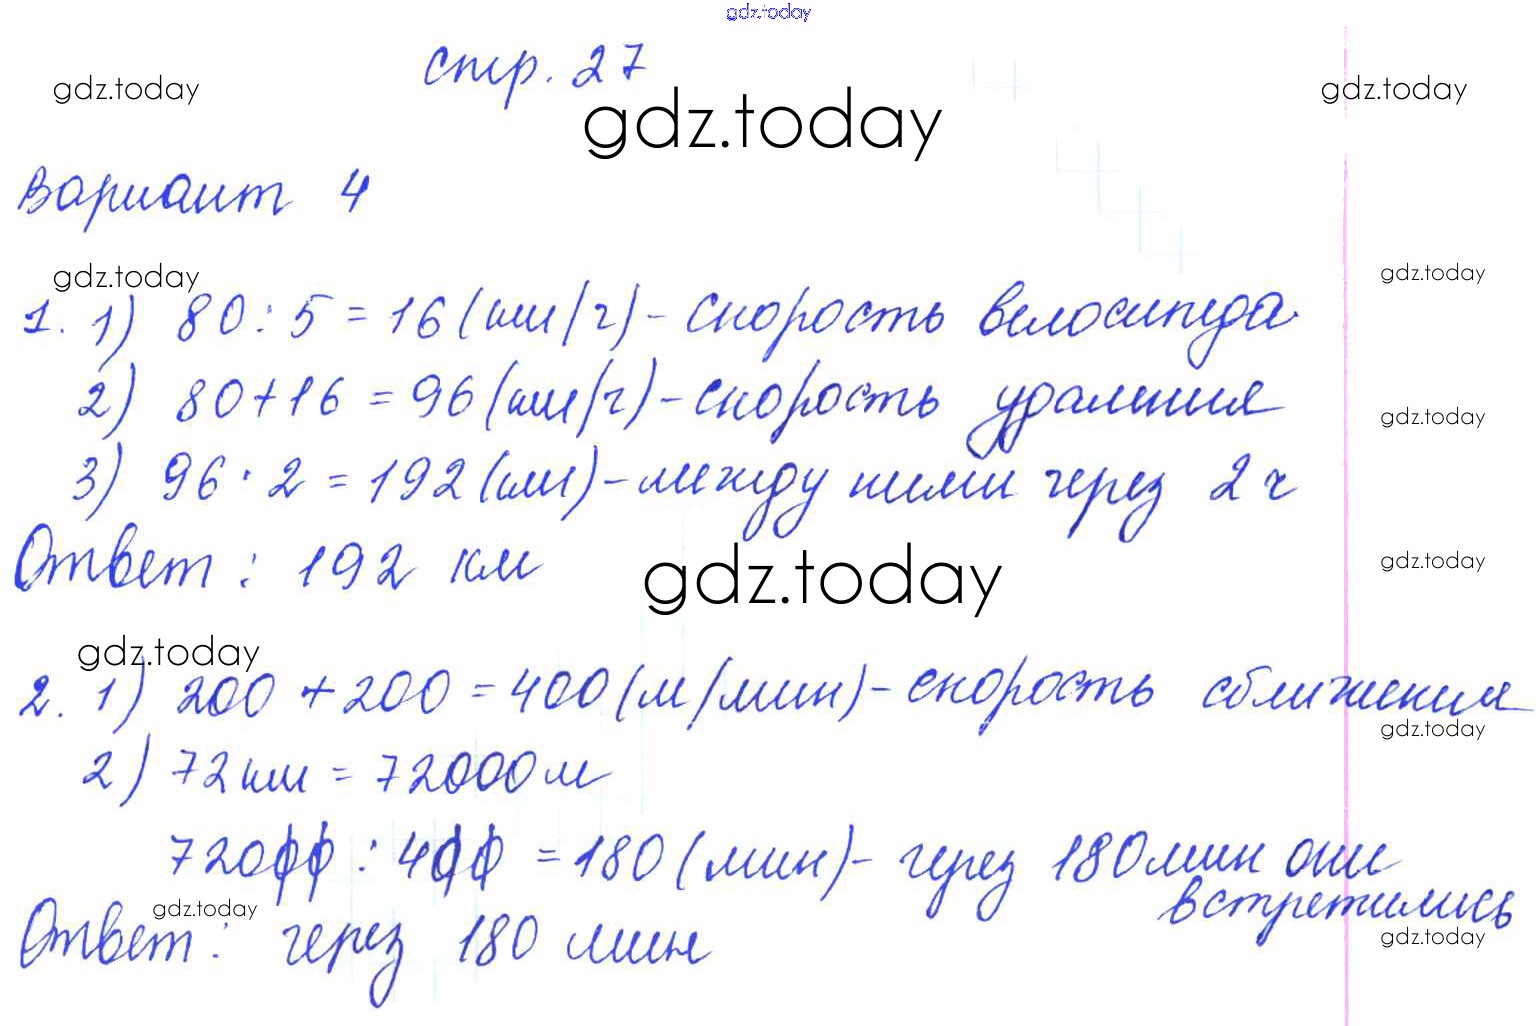 gdz.today
стр. 27
gdz.today
gdz.today
gdz.today
Вариант 4
gdz.today
gdz.today
1. 1) 80 : 5 = 16 (км/ч) - скорость велосипеда
2) 80 + 16 = 96 (км/ч) - скорость удаления
gdz.today
3) 96 · 2 = 192 (км) - между ними через 2 ч
Ответ : 192 км
gdz.today
gdz.today
gdz.today
2. 1) 200 + 200 = 400 (м/мин) - скорость сближения
gdz.today
2) 72 км = 72000 м
72000 : 400 = 180 (мин) - через 180 мин они
встретились
gdz.today
Ответ : через 180 мин
gdz.today